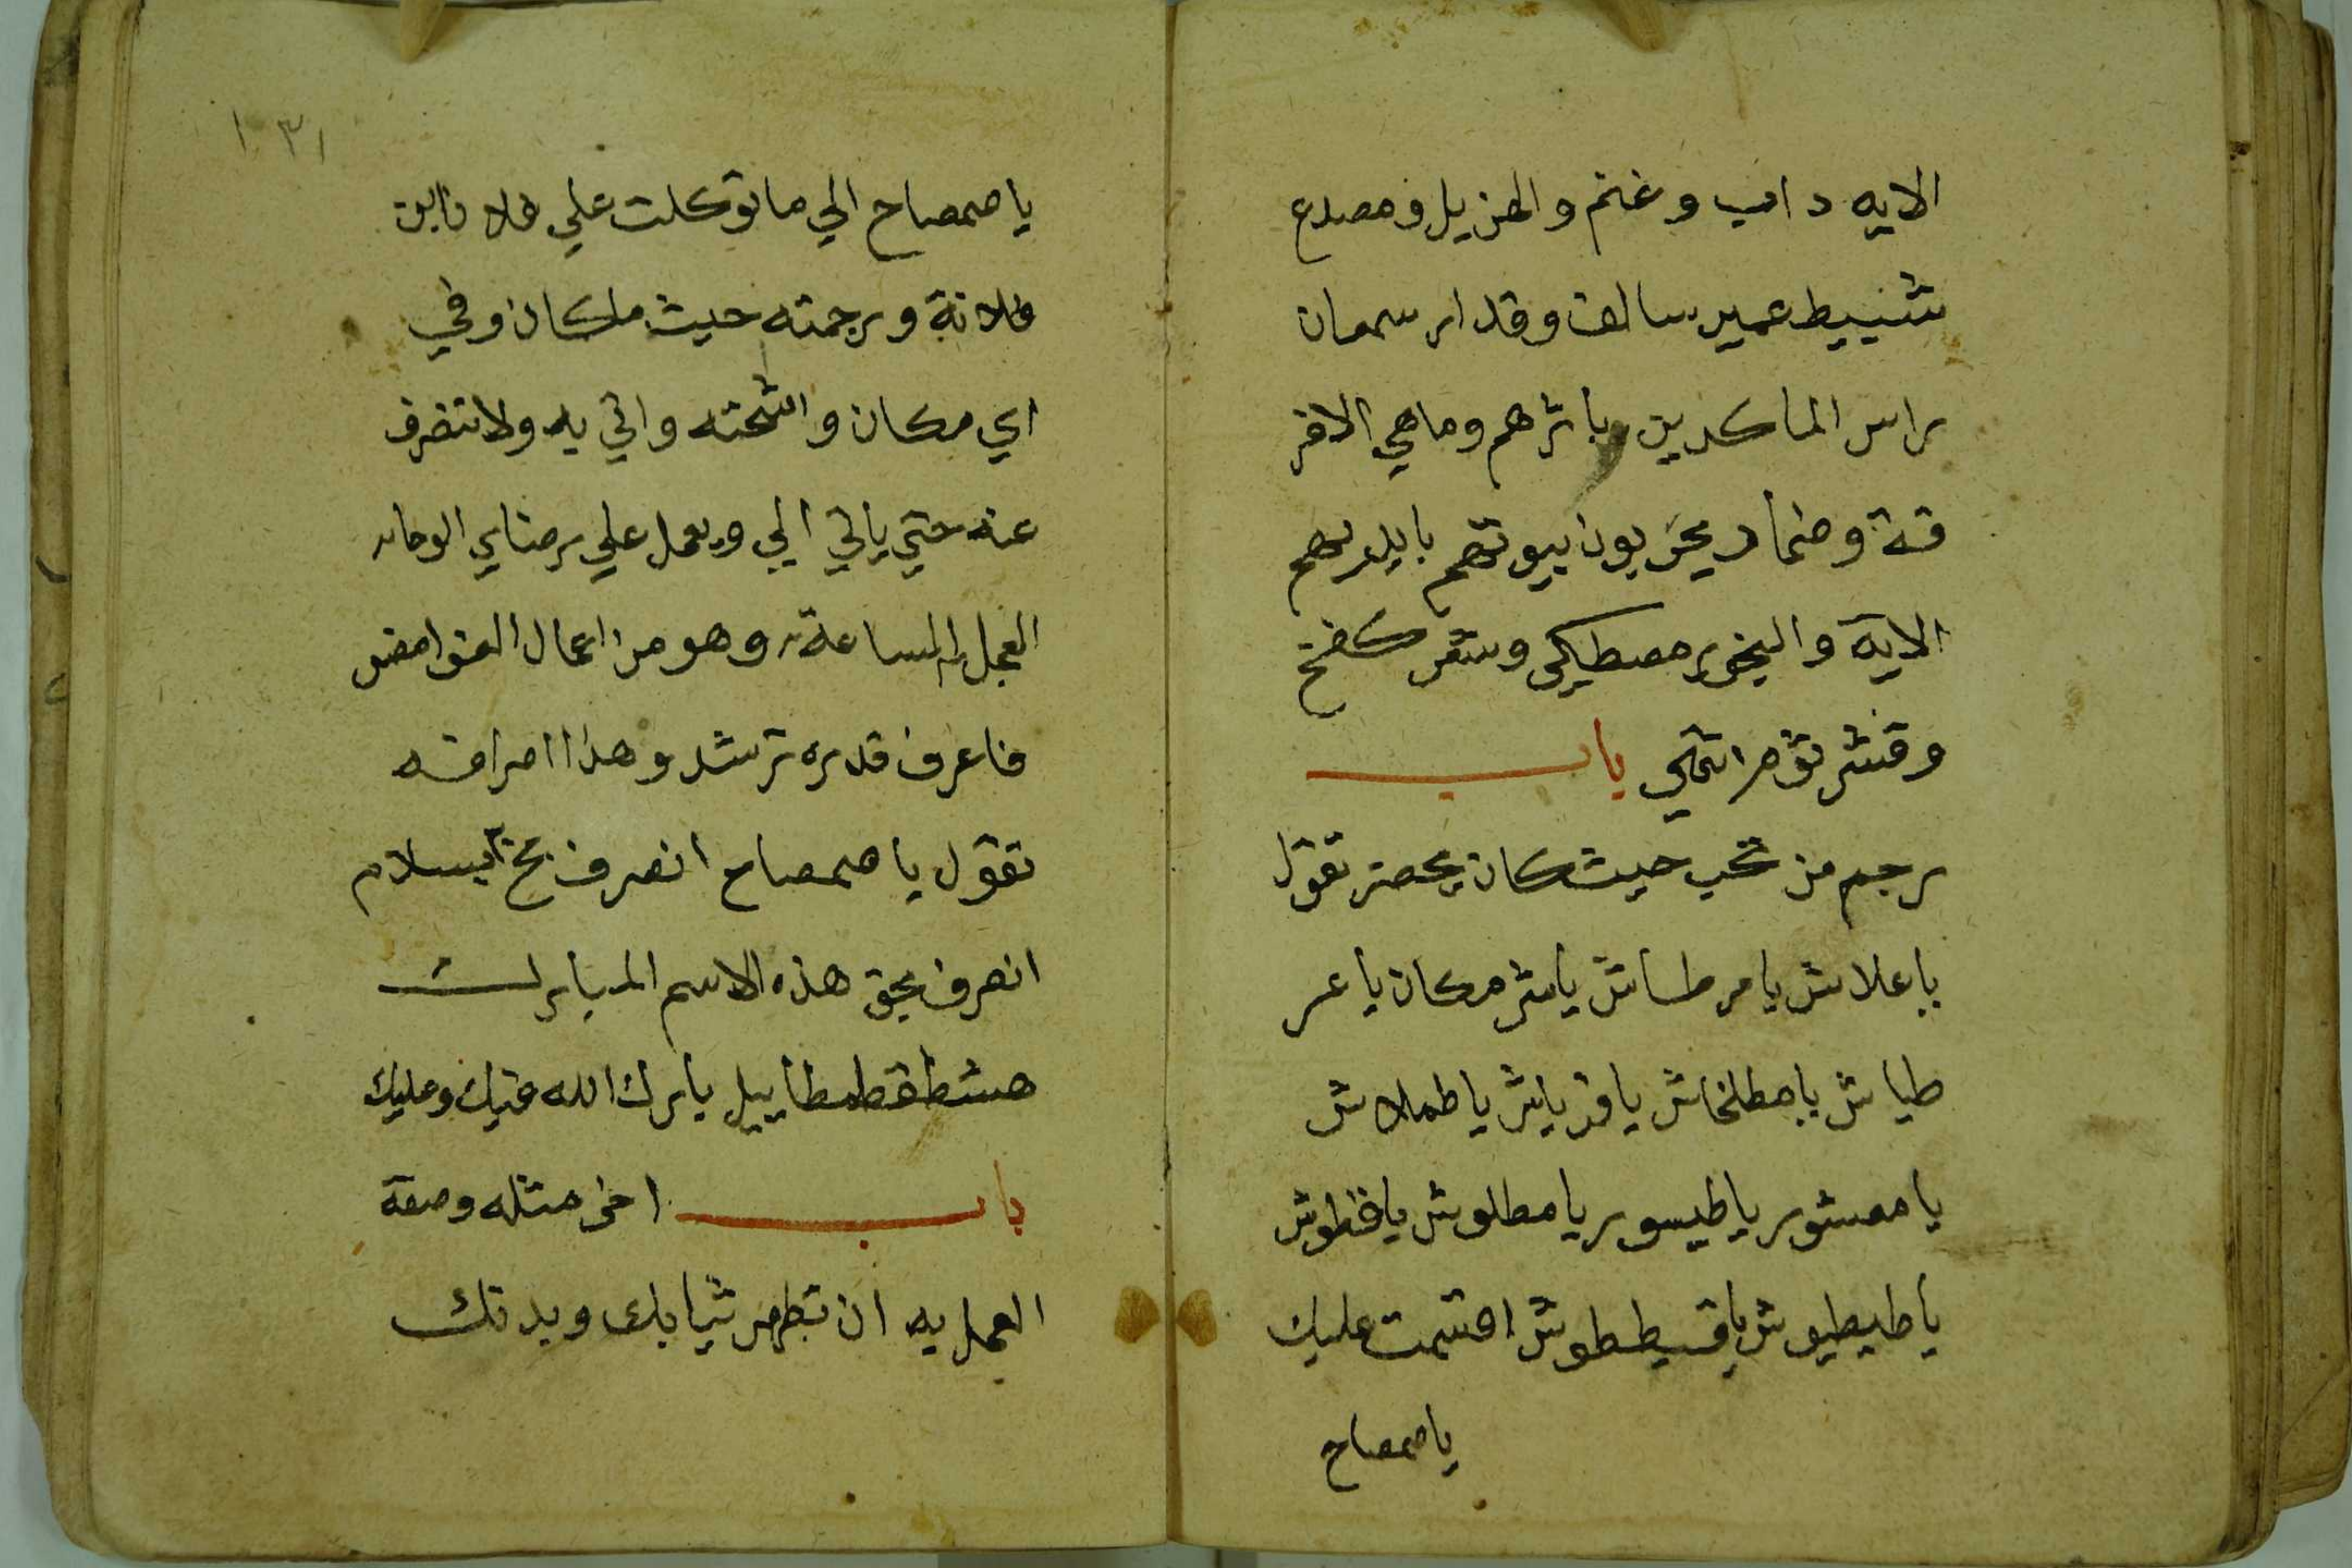 الايه داب وغنم والهزيل ومصدع
شنييط عمير سالف وقدار سمعان
راس الماكدين وباثرهم وماهي الافر
قة وضماد يخربون بيوتهم بايديهم
الاية والبخور مصطكى وشعر كفنح
وقشر ثوم انتهي باب
رجم من تحب حيث كان يحضر تقول
ياعلاش يامرطاش ياشر مكان ياعر
طياش يامطلخاش ياقرياش ياطملاش
يامعشور ياطيسور يامطلوش ياقطوش
ياطيطيوش ياقسيططوش اقسمت عليك
ياصمصاح
١٣١
ياصمصاح الي ما توكلت علي فلان ابن
فلانة ورجمته حيث ملكان وفي
اي مكان واتي به ولا تنصرف
عنه حتي ياتي الي ويعمل علي رضاي الوحا
العجل الساعة وهو من اعمال الغوامض
فاعرف قدره ترشد وهذا اصرافه
تقول ياصمصاح انصرف بسلام
انصرف بحق هذه الاسم المبارك
هشطقطمطاييل بارك الله فيك وعليك
باب اخر مثله وصفة
العمل به ان تطهر ثيابك وبدنك